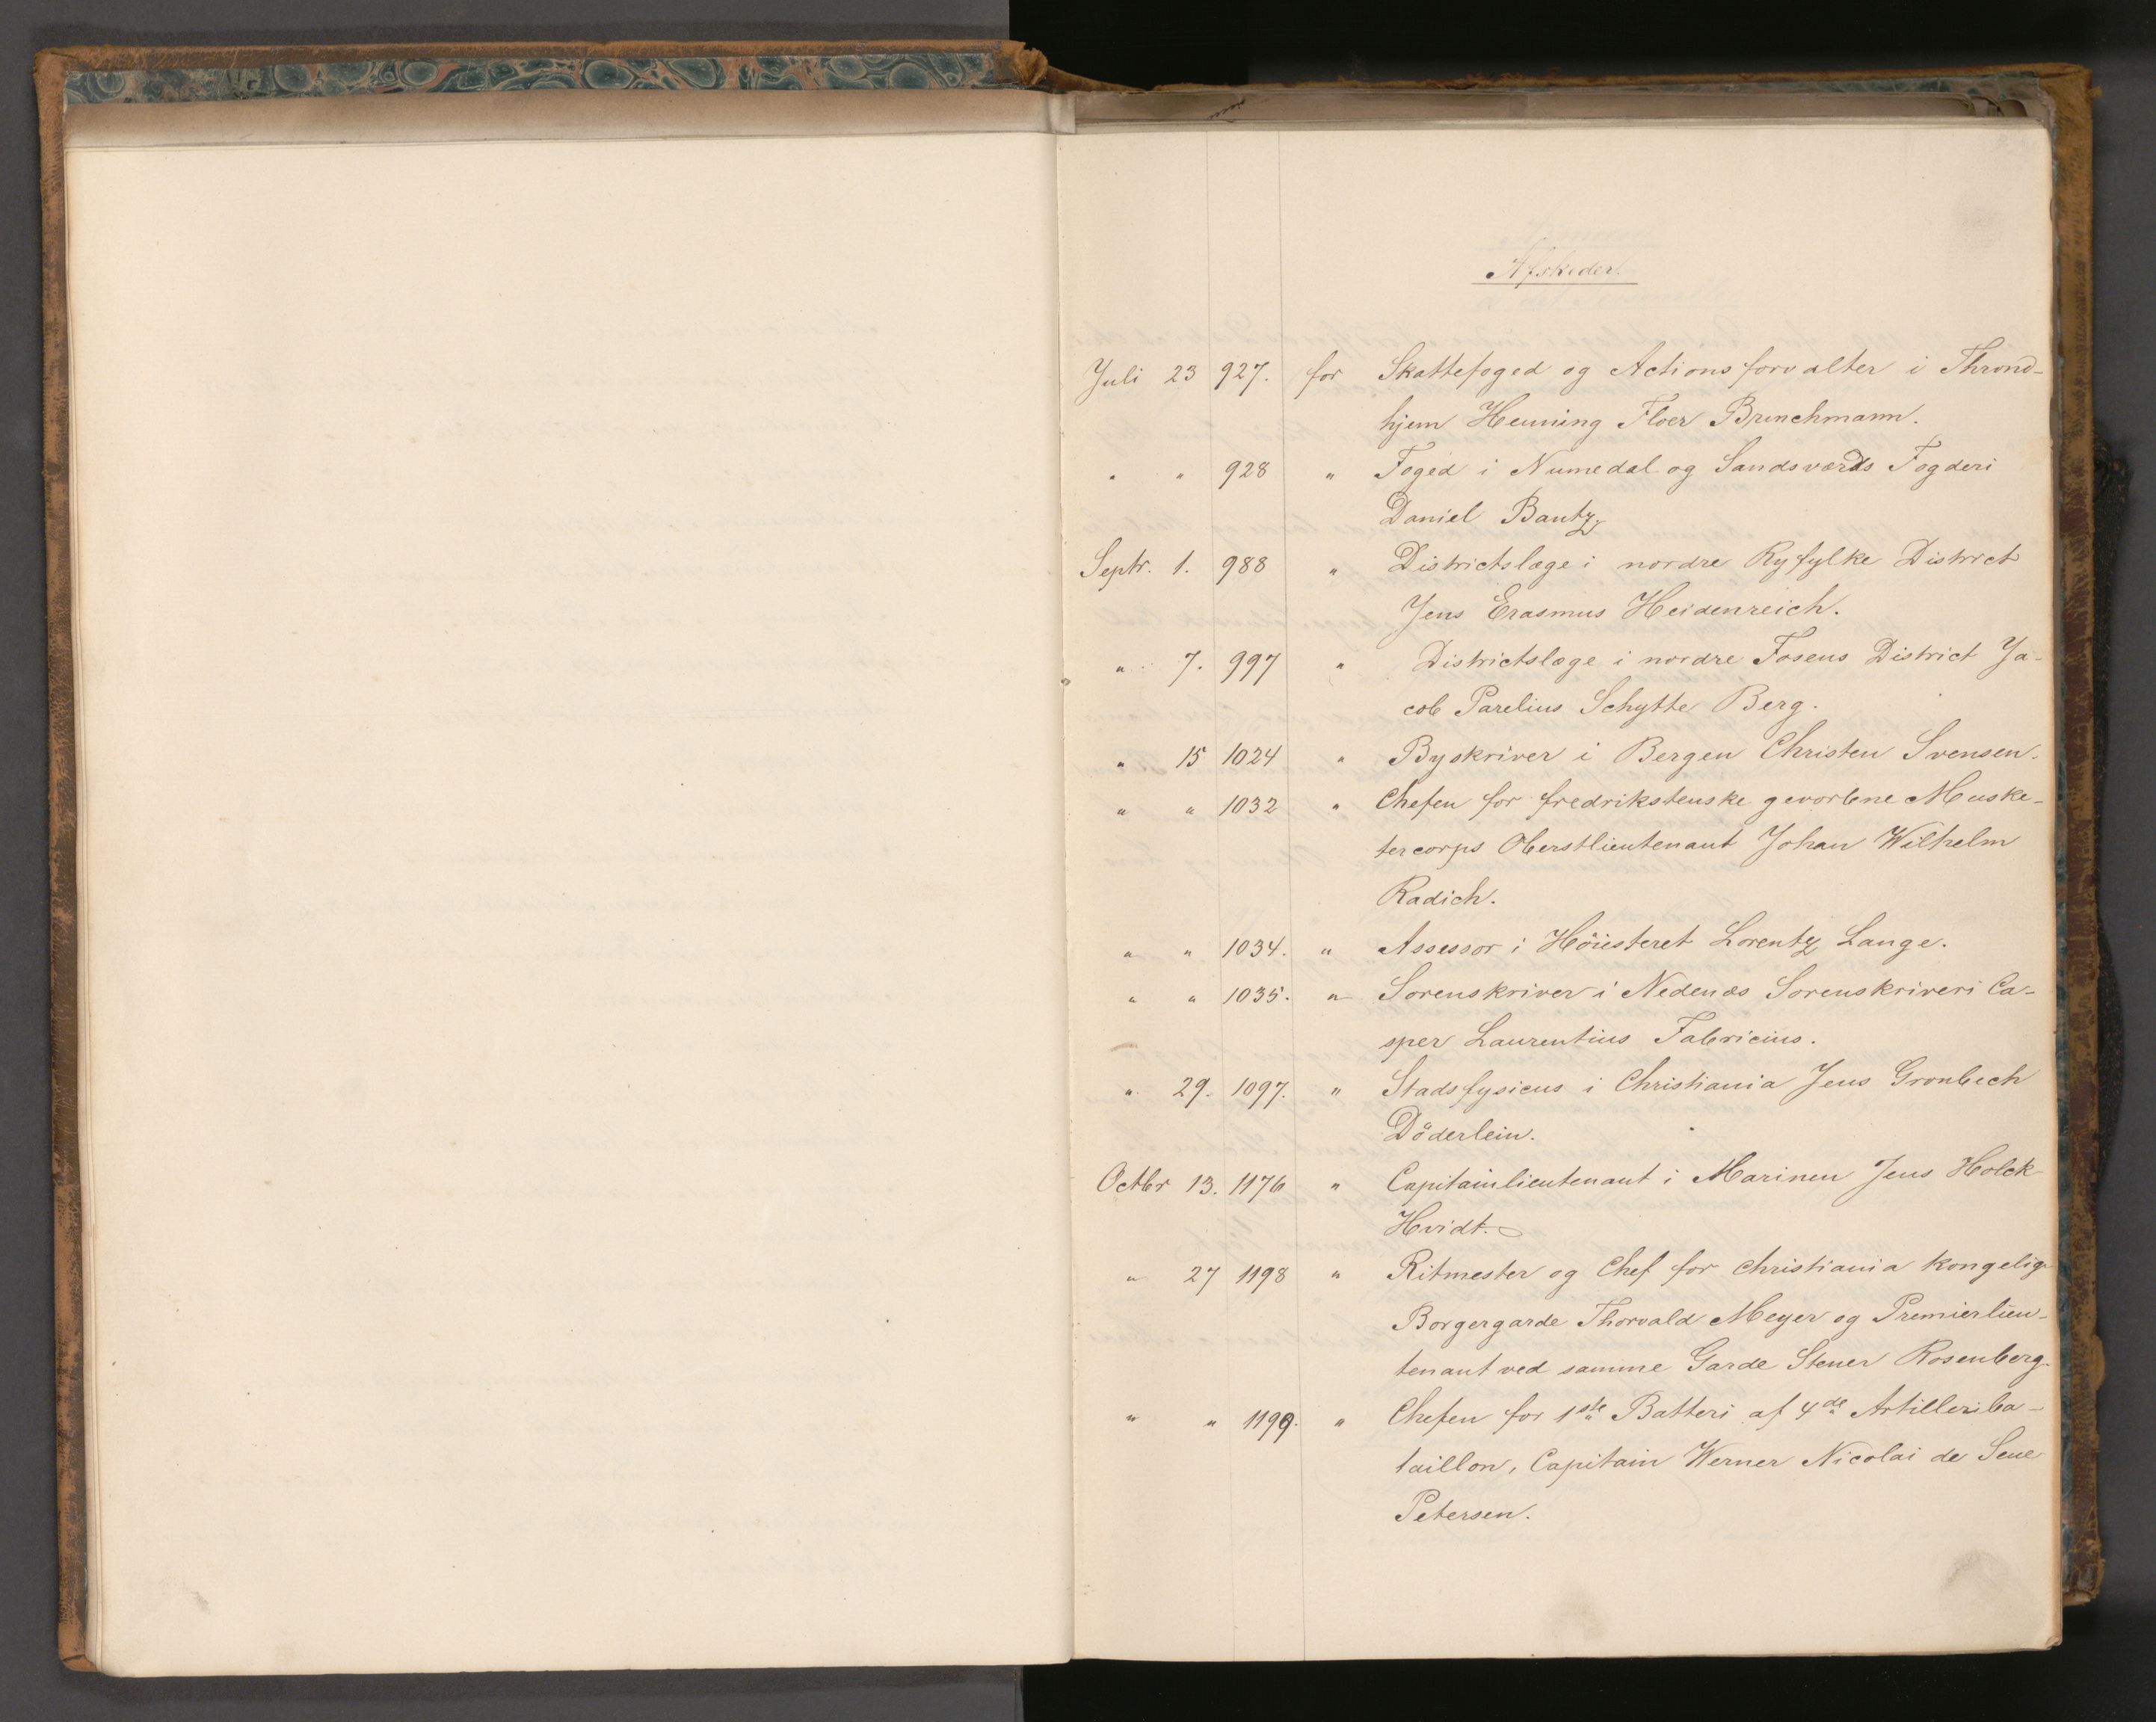 Afskeder.
Juli 23 927. for Skattefoged og Actionsforvalter i Thrond-
hjem Henning Floer Brunchmann.
" " 928 " Foged i Numedal og Sandsværds Fogderi
Daniel Bautz,
Septr. 1. 988 " Districtslæge i nordre Ryfylke District
Jens Erasmus Heidenreich.
" 7. 997 " Districtslæge i nordre Fosens District Ja-
cob Parelius Schytte Berg.
" 15 1024 " Byskriver i Bergen Christen Svensen.
" " 1032 " Chefen for fredrikstenske gevorbne Muske-
tercorps Oberstlieutenant Johan Wilhelm
Radich.
" " 1034. " Assessor i Höiesteret Lorentz Lange.
" " 1035. " Sorenskriver i Nedenæs Sorenskriveri Ca-
sper Laurentius Fabricius.
" 29. 1097. " Stadsfysicus i Christiania Jens Gronbech
Döderlein.
Octbr 13. 1176 " Capitainlieutenant i Marinen Jens Holck
Hvidt.
" 27 1198 " Ritmester og Chef for Christiania kongelige
Borgergarde Thorvald Meyer og Premierlieu-
tenant ved samme Garde Stener Rosenberg.
" " 1199. " Chefen for 1ste Batteri af 4de Artilleriba-
taillon, Capitain Werner Nicolai de Seue
Petersen.